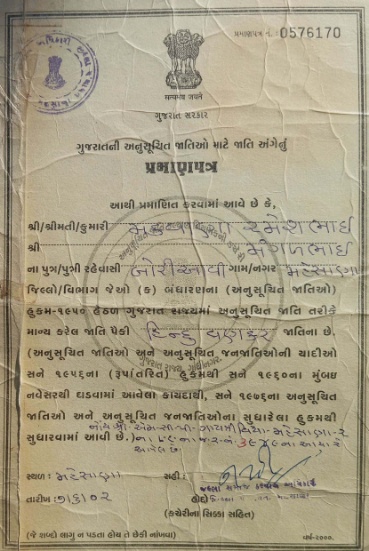 પ્રમાણપત્ર નં. 0576170
सत्यमेव जयते
ગુજરાત સરકાર
ગુજરાતની અનુસૂચિત જાતિઓ માટે જાતિ અંગેનું
પ્રમાણપત્ર
આથી પ્રમાણિત કરવામાં આવે છે કે,
શ્રી/શ્રીમતી/કુમારી રમેશભાઈ
શ્રી મંગળભાઈ
ના પુત્ર/પુત્રી રહેવાસી બોરીઆવી ગામ/નગર મહેસાણા
જિલ્લો/વિભાગ જેઓ (ક) બંધારણના (અનુસૂચિત જાતિઓ)
હુકમ-૧૯૫૦ હેઠળ ગુજરાત રાજ્યમાં અનુસૂચિત જાતિ તરીકે
માન્ય કરેલ જાતિ પૈકી હિન્દુ વણકર જાતિના છે.
(અનુસૂચિત જાતિઓ અને અનુસૂચિત જનજાતિઓની યાદીઓ
સને ૧૯૫૬ના (રૂપાંતરિત) હુકમથી સને ૧૯૬૦ના મુંબઇ
નવેસરથી ઘડવામાં આવેલા કાયદાથી, સને ૧૯૭૬ના અનુસૂચિત
જાતિઓ અને અનુસૂચિત જનજાતિઓના સુધારેલા હુકમથી
સુધારવામાં આવી છે.)
સ્થળ: મહેસાણા સહી:
તારીખ: હોદ્દો
(કચેરીના સિક્કા સહિત)
(જે શબ્દો લાગુ ન પડતા હોય તે છેકી નાંખવા) વર્ષ-૨૦૦૦.